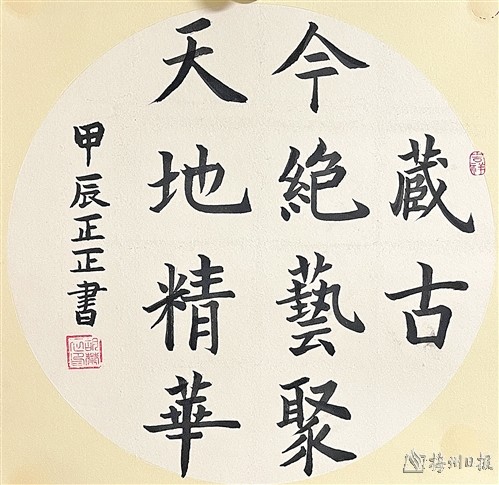 藏古
今絕藝聚
天地精華
甲辰正正書
梅州日报